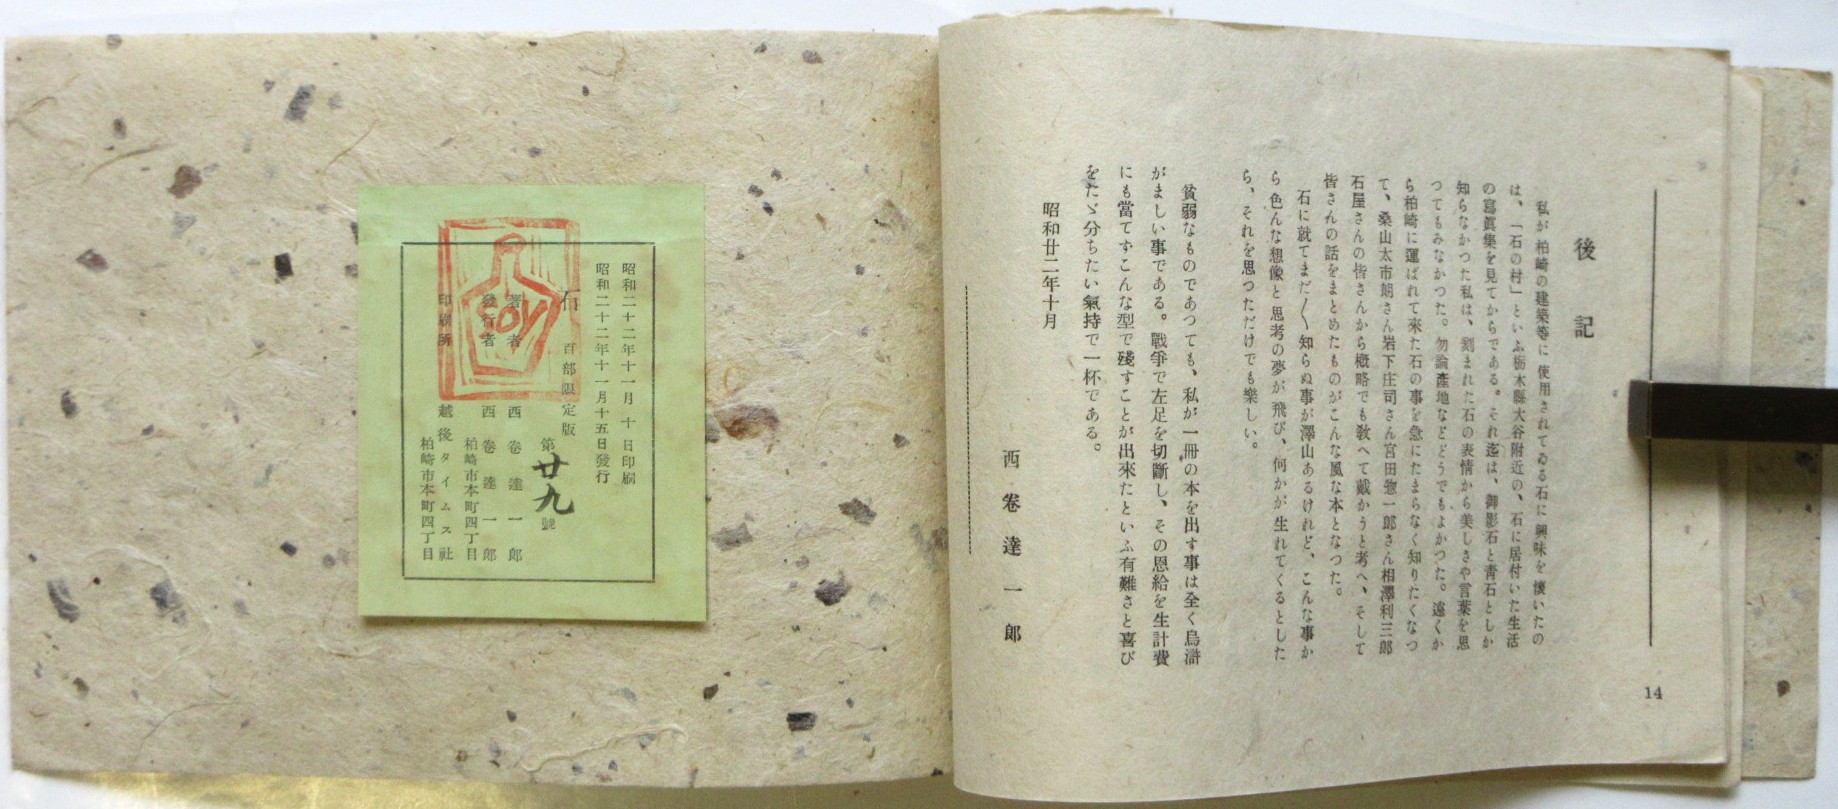 後記
私が柏崎の建築等に使用されてゐる石に興味を懐いたの
は、「石の村」といふ栃木縣大谷附近の、石に居付いた生活
の寫眞集を見てからである。それ迄は、御影石と青石としか
知らなかつた私は、刻まれた石の表情から美しさや言葉を思
つてもみなかつた。勿論產地などどうでもよかつた。遠くか
ら柏崎に運ばれて來た石の事を急にたまらなく知りたくなつ
て、桑山太市朗さん岩下庄司さん宮田惣一郎さん相澤利三郎
石屋さんの皆さんから概略でも敎へて戴かうと考へ、そして
皆さんの話をまとめたものがこんな風な本となつた。
石に就てまだ〱知らぬ事が澤山あるけれど、こんな事か
ら色んな想像と思考の夢が飛び、何かが生れてくるとした
ら、それを思つただけでも樂しい。
貧弱なものであつても、私が一冊の本を出す事は全く烏滸
がましい事である。戰爭で左足を切斷し、その恩給を生計費
にも當てずこんな型で殘すことが出來たといふ有難さと喜び
をたゞ分ちたい氣持で一杯である。
昭和廿二年十月
西卷達一郎
14
昭和二十二年十一月十日印刷
昭和二十二年十一月十五日發行
石 百部限定版
第廿九號
著者 西卷達一郎
發行者 西卷達一郎
柏崎市本町四丁目
印刷所 越後タイムス社
柏崎市本町四丁目
SOY